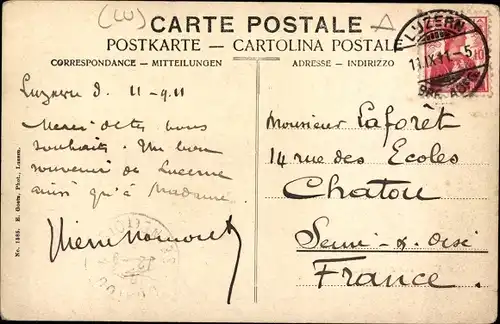 (LU)
CARTE POSTALE
POSTKARTE - CARTOLINA POSTALE
CORRESPONDANCE - MITTEILUNGEN
ADRESSE - INDIRIZZO
LUZERN
11.IX.11.-5
10
Luzern d. 11-9.11
Merci de vos bons
souhaits. Un bon
souvenir de Lucerne
ainsi qu'à Madame
Monsieur Laforêt
14 rue des Ecoles
Chatou
Seine-&-Oise
France.
No. 1585. E. Goetz, Phot., Luzern.